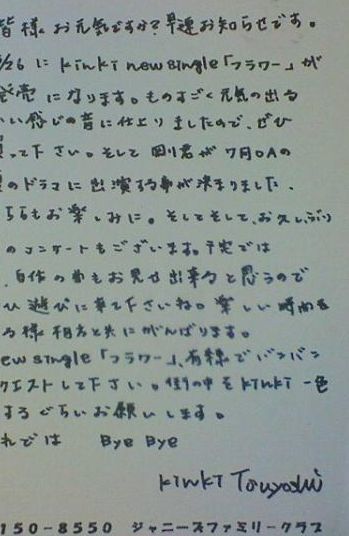 皆様 お元気ですか?早速お知らせです。
/26 に KinKi new single「フラワー」が
発売 になります。ものすごく元気の出る
いい感じの音に仕上りましたので、ぜひ
買って下さい。そして 剛君が 7月O.Aの
のドラマに出演する事が決まりました、
ちらもお楽しみに。そしてそして、お久しぶり
のコンサートもございます。予定では
自作の曲もお見せ出来ると思うので
ひ 遊びに来て下さいね。楽しい時間を
る様 相方と共にがんばります。
ew single「フラワー」、有線でバンバン
クエストして下さい。街の中をKinKi一色
するぐらいお願いします。
れでは Bye Bye
KinKi Tsuyoshi
150-8550 ジャニーズファミリークラブ